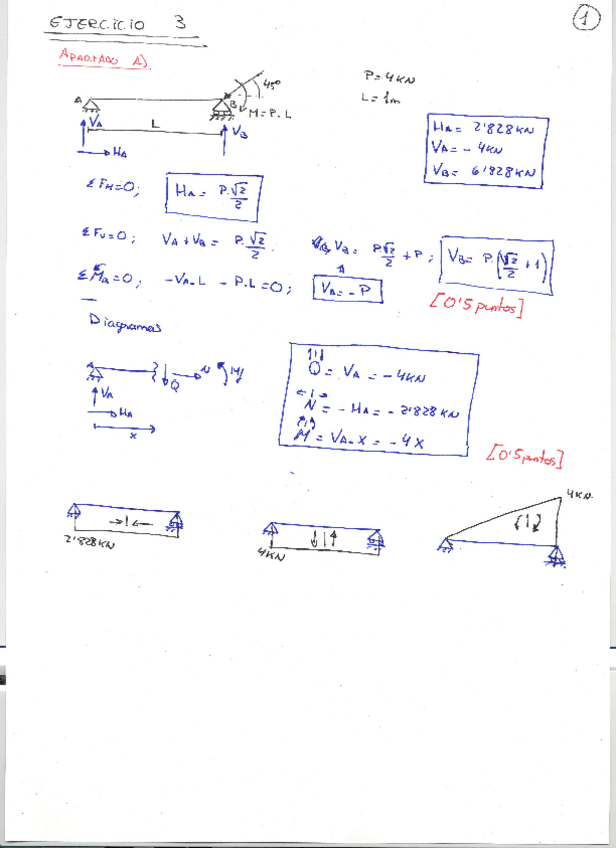 EJERCICIO 3
1
APARTADO A)
45º
P = 4KN
A
B
M = P.L
L = 1m
VA
L
VB
HA
HA = 2'828KN
VA = - 4KN
VB = 6'828KN
ΣFH=0; HA = P.√2/2
ΣFV=0; VA + VB = P.√2/2. VB = P√2/2 + P; VB = P.(√2/2 + 1)
ΣMB=0; -VA.L - P.L = 0; VA = - P
[0'5 puntos]
Diagramas
A
N
M
Q
VA
HA
x
Q = VA = - 4KN
N = - HA = - 2'828KN
M = VA.x = - 4x
[0'5 puntos]
2'828KN
4KN
4KN.